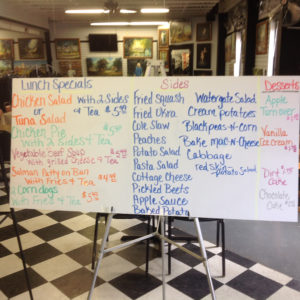 Lunch Specials
Chicken Salad With 2 Sides
or & Tea
Tuna Salad
Chicken Pie
With 2 Sides & Tea
Vegetable Beef Soup
With Grilled Cheese & Tea
Salmon Patty on Bun
With Fries & Tea
Corndogs
With Fries & Tea
Sides
Fried Squash
Fried Okra
Cole Slaw
Peaches
Potato Salad
Pasta Salad
Cottage Cheese
Pickled Beets
Apple Sauce
Baked Potato
Watergate Salad
Creamed potatoes
Blackpeas-n-Corn
Bake mac-n-Cheese
Cabbage
red skin
potato Salad
Desserts
Apple
Turnover
Vanilla
Ice cream
Dirt
Cake
Chocolate
Cake